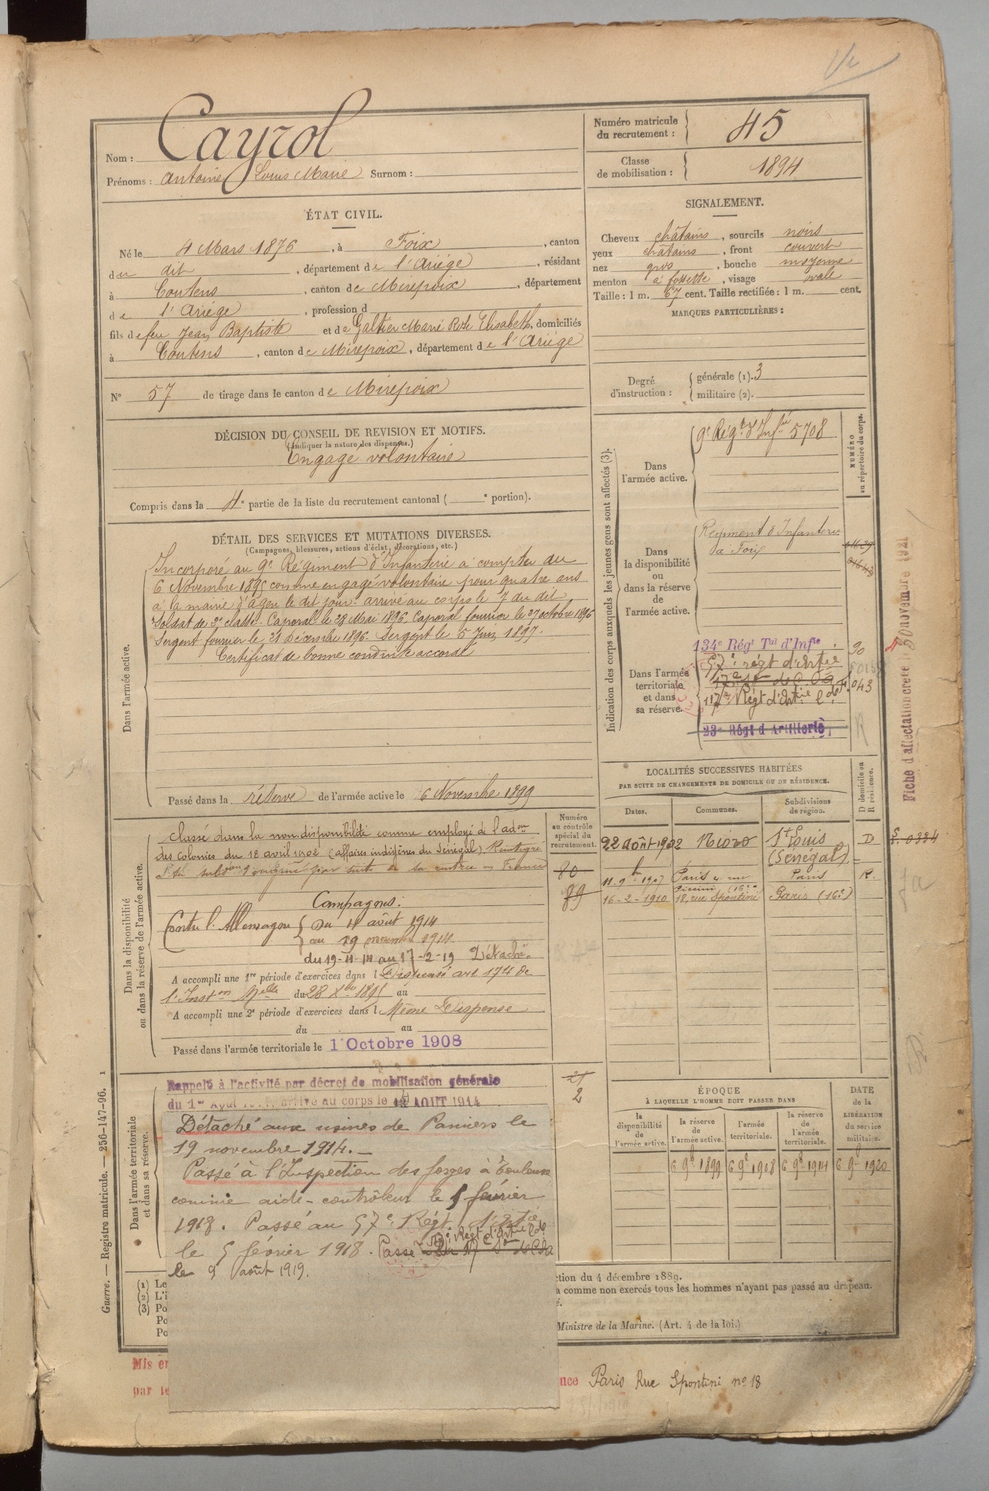 Nom : Cayrol
Prénoms : Antoine Louis Marie Surnom :
Numéro matricule du recrutement : 45
Classe de mobilisation : 1894
ÉTAT CIVIL.
Né le 4 Mars 1876, à Foix, canton
du dit, département de l'Ariège, résidant
à Coutens, canton de Mirepoix, département
de l'Ariège, profession d
fils de feu Jean Baptiste et de Galtier Marie Rose Elisabeth, domiciliés
à Coutens, canton de Mirepoix, département de l'Ariège
N° 57 de tirage dans le canton de Mirepoix
SIGNALEMENT.
Cheveux châtains, sourcils noirs
yeux châtains, front couvert
nez gros, bouche moyenne
menton à fossette, visage ovale
Taille : 1 m. 67 cent. Taille rectifiée : 1 m. cent.
MARQUES PARTICULIÈRES :
Degré d'instruction : générale (1). 3
militaire (2).
DÉCISION DU CONSEIL DE REVISION ET MOTIFS.
(Indiquer la nature des dispenses.)
Engagé volontaire
Compris dans la 4e partie de la liste du recrutement cantonal ( e portion).
DÉTAIL DES SERVICES ET MUTATIONS DIVERSES.
(Campagnes, blessures, actions d'éclat, décorations, etc.)
Dans l'armée active.
Incorporé au 9e Régiment d'Infanterie à compter du
6 Novembre 1895 comme engagé volontaire pour quatre ans
à la mairie d'Agen le dit jour. arrivé au corps le 7 du dit,
Soldat de 2e classe. Caporal le 28 Mai 1896. Caporal fourrier le 27 octobre 1896
Sergent fourrier le 28 Décembre 1896. Sergent le 5 Juin 1897.
Certificat de bonne conduite accordé
Passé dans la réserve de l'armée active le 6 Novembre 1899
Indication des corps auxquels les jeunes gens sont affectés (3).
NUMÉRO au répertoire du corps.
Dans l'armée active.
9e Régt d'Infie 5708
Dans la disponibilité ou dans la réserve de l'armée active.
Régiment d'Infanterie
de Foix
Dans l'armée territoriale et dans sa réserve.
134e Régt Tal d'Infie 90
57e régt d'Artie
117e Régt d'Artie 043
23e Régt d'Artillerie
Fiche d'affectation créée le 30 novembre 1921
LOCALITÉS SUCCESSIVES HABITÉES
PAR SUITE DE CHANGEMENTS DE DOMICILE OU DE RÉSIDENCE.
Dates. Communes. Subdivisions de région. D domicile ou R résidence.
22 Août 1902 Nioro St Louis (Sénégal) D
11-9-1907 Paris Paris R.
16-2-1910 18, rue Spontini Paris (16e)
Numéro au contrôle spécial du recrutement.
80
89
Dans la disponibilité ou dans la réserve de l'armée active.
Classé dans la non disponibilité comme employé à l'adon
des Colonies du 18 avril 1902 (affaires indigènes du Sénégal) Réintégré
par suite de sa rentrée en France
Campagnes.
Contre l'Allemagne Du 11 août 1914
au 19 novembre 1914
du 19-11-14 au 17-2-19 Détaché.
A accompli une 1re période d'exercices dans l Dispensé art 174 de
l'Inston Melle du 28 Xbre 1895 au
A accompli une 2e période d'exercices dans l Même Dispense
du au
Passé dans l'armée territoriale le 1 Octobre 1908
Dans l'armée territoriale et dans sa réserve.
Rappelé à l'activité par décret de mobilisation générale
du 1er Août arrivé au corps le AOUT 1914
2
Détaché aux usines de Pamiers le
19 novembre 1914.
Passé à l'Inspection des forges à Toulouse
comme aide-contrôleur le 5 février
1918. Passé au 57e Régt d'Artie
le 5 février 1918. Passé
le 9 août 1919.
ÉPOQUE
À LAQUELLE L'HOMME DOIT PASSER DANS
la disponibilité de l'armée active. la réserve de l'armée active. l'armée territoriale. la réserve de l'armée territoriale. DATE de la LIBÉRATION du service militaire.
6 9bre 1899 6 9bre 1908 6 9bre 1914 6 9bre 1920
ction du 4 décembre 1889.
a comme non exercés tous les hommes n'ayant pas passé au drapeau.
Ministre de la Marine. (Art. 4 de la loi.)
(1) Le
(2) L'i
(3) Po
Po
Po
Mis en
par le
nce Paris Rue Spontini no 18
Guerre. — Registre matricule. — 256-147-96. 1